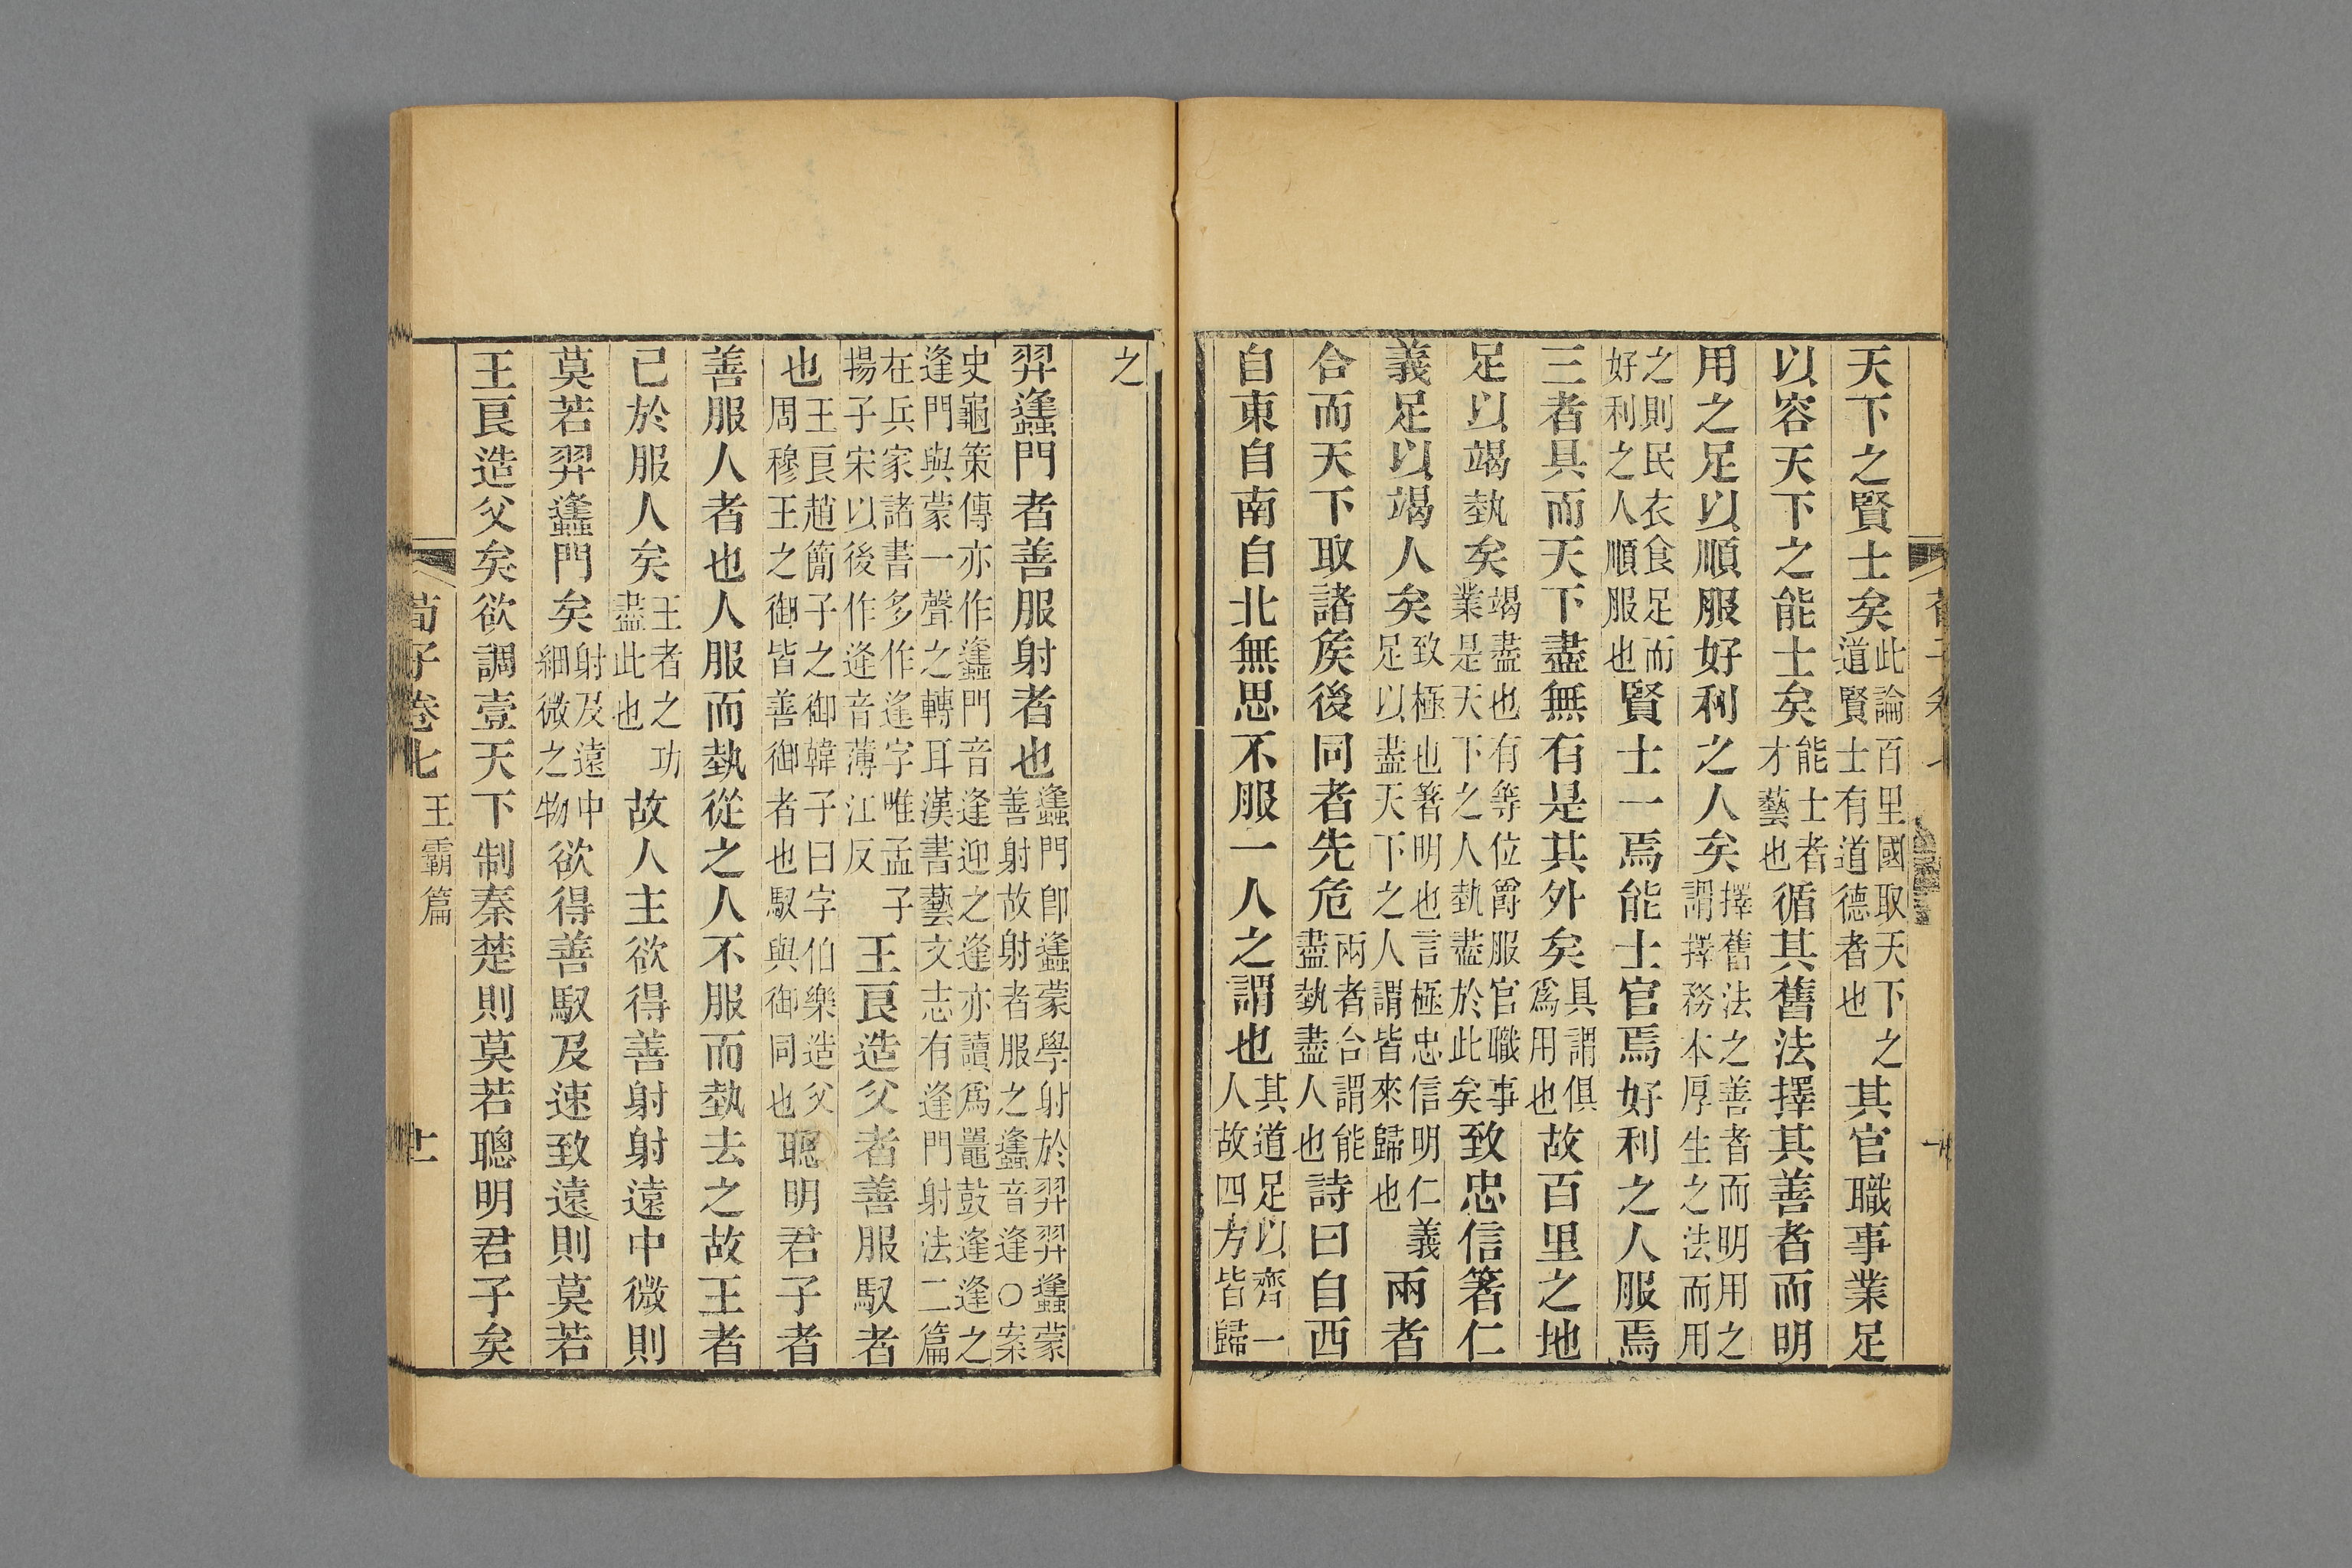 天下之賢士矣此論百里國取天下之道賢士有道德者也其官職事業足
以容天下之能士矣能士者才藝也循其舊法擇其善者而明
用之足以順服好利之人矣擇舊法之善者而明用之謂擇務本厚生之法而用
之則民衣食足而好利之人順服也賢士一焉能士官焉好利之人服焉
三者具而天下盡無有是其外矣具謂俱爲用也故百里之地
足以竭埶矣竭盡也有等位爵服官職事業是天下之人埶盡於此矣致忠信箸仁
義足以竭人矣致極也箸明也言極忠信明仁義足以盡天下之人謂皆來歸也兩者
合而天下取諸矦後同者先危兩者合謂能盡埶盡人也詩曰自西
自東自南自北無思不服一人之謂也其道足以齊一人故四方皆歸
之
羿蠭門者善服射者也蠭門卽蠭蒙學射於羿羿蠭蒙善射故射者服之蠭音逢○案
史龜策傳亦作蠭門音逢迎之逢亦讀爲鼉鼓逢逢之逢門與蒙一聲之轉耳漢書藝文志有逢門射法二篇
在兵家諸書多作逢字唯孟子揚子宋以後作逄音薄江反王良造父者善服馭者
也王良趙簡子之御韓子曰字伯樂造父周穆王之御皆善御者也馭與御同也聰明君子者
善服人者也人服而埶從之人不服而埶去之故王者
已於服人矣王者之功盡此也故人主欲得善射射遠中微則
莫若羿蠭門矣射及遠中細微之物欲得善馭及速致遠則莫若
王良造父矣欲調壹天下制秦楚則莫若聰明君子矣
荀子卷七 王霸篇 十一